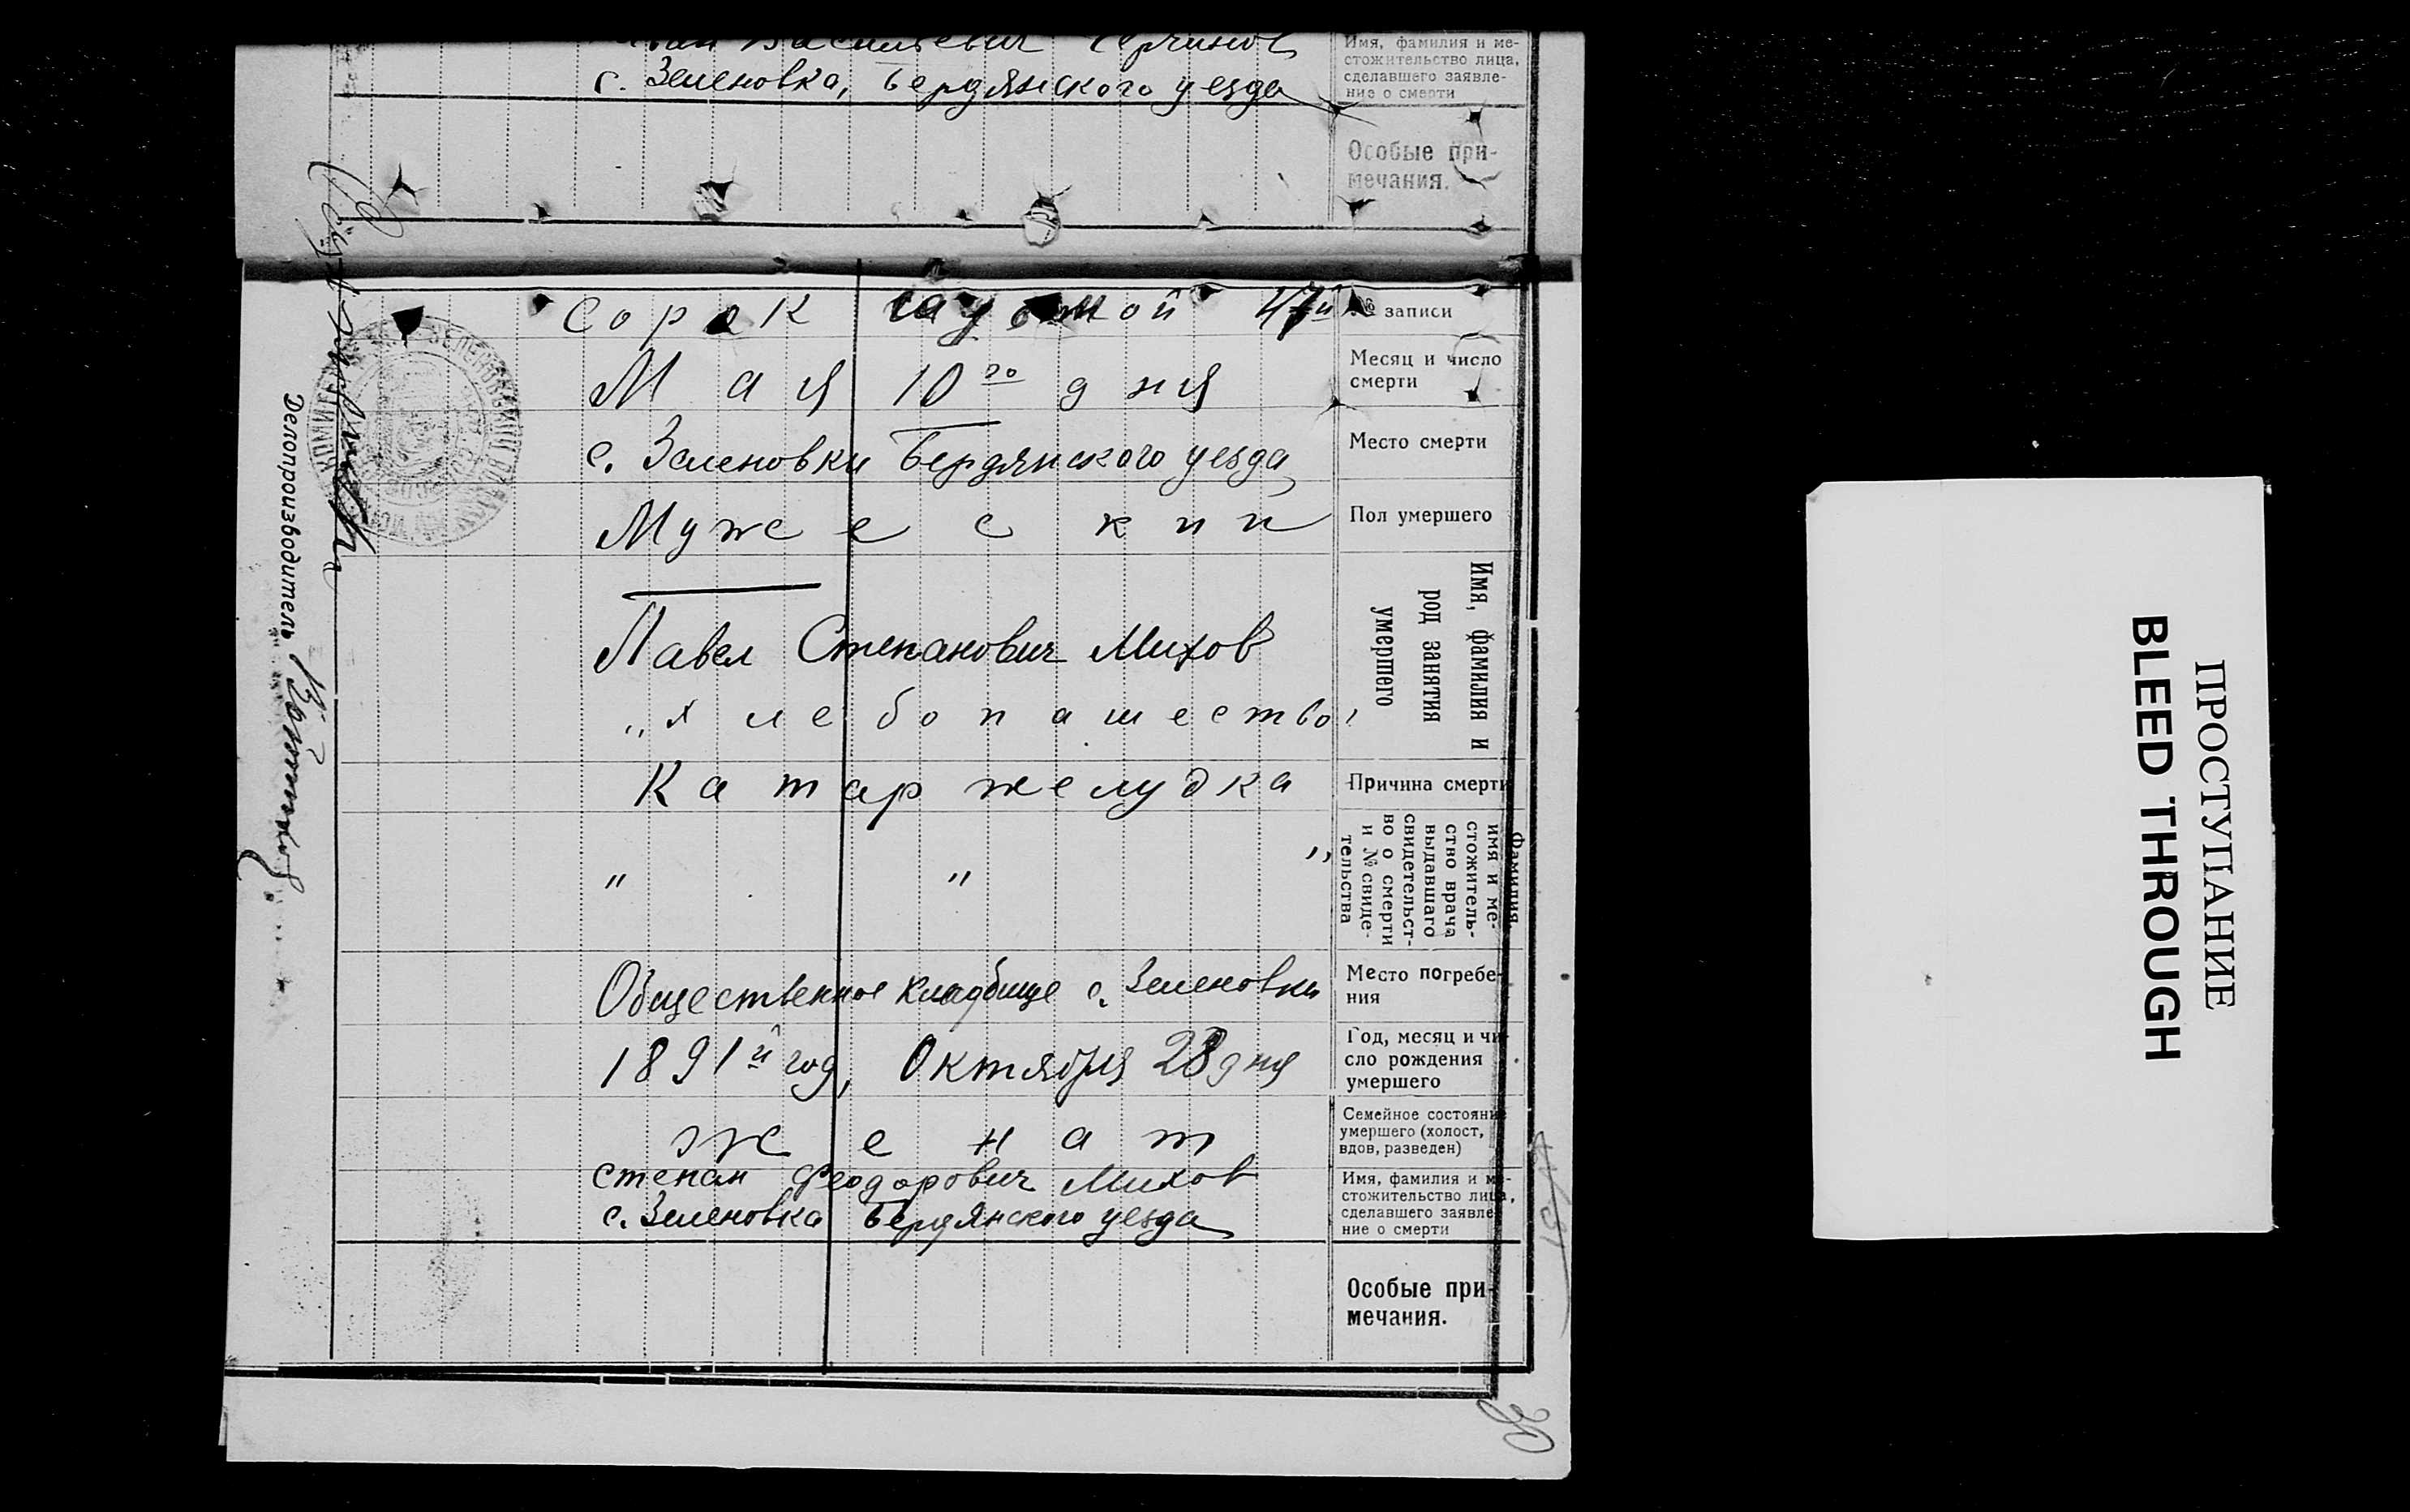 Васильевич
с. Зеленовка, Бердянского уезда
Имя, фамилия и ме-
стожительство лица,
сделавшего заявле-
ние о смерти
Особые при-
мечания.
Сорок седьмой 47й
№ записи
Мая 10го дня
Месяц и число
смерти
с. Зеленовки Бердянского уезда
Место смерти
Мужеский
Пол умершего
Павел Степанович Михов
„хлебопашество"
Имя, фамилия и
род занятия
умершего
Катар желудка
Причина смерти
" " "
Фамилия,
имя и ме-
стожитель-
ство врача
выдавшаго
свидетельст-
во о смерти
и № свиде-
тельства
Общественное кладбище с. Зеленовки
Место погребе-
ния
1891й год, Октября 28 дня
Год, месяц и чи-
сло рождения
умершего
женат
Семейное состояние
умершего (холост,
вдов, разведен)
Степан Феодорович Михов
с. Зеленовка Бердянского уезда
Имя, фамилия и ме-
стожительство лица,
сделавшего заявле-
ние о смерти
Особые при-
мечания.
Делопроизводитель
30
ПРОСТУПАНИЕ
BLEED THROUGH